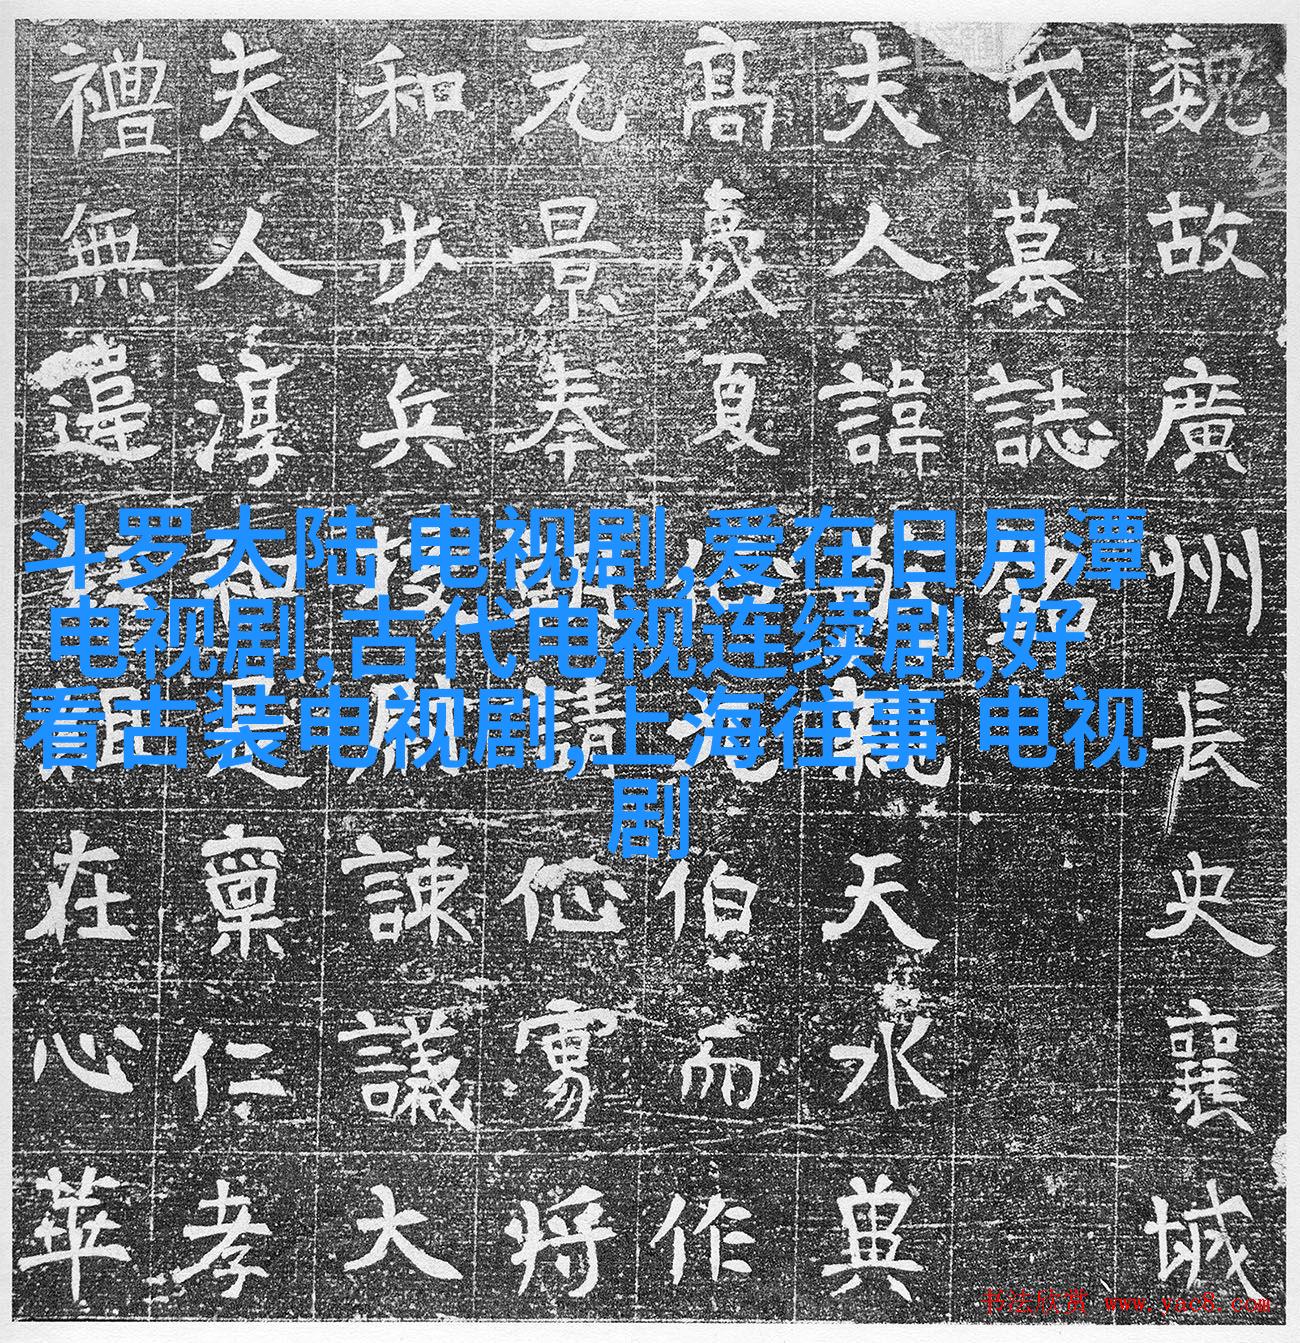 斗罗大陆 电视剧,爱在日月潭
电视剧,古代电视连续剧,好
看古装电视剧,上海往事 电视
剧
魏故廣州長史襄城
氏墓誌銘
夫人諱天水典
髙夏伯而作
元景奉朝請将
和步兵校尉諫議大
夫人淳和是稟仁孝
禮無違在心華
书法欣赏 www.yac8.com